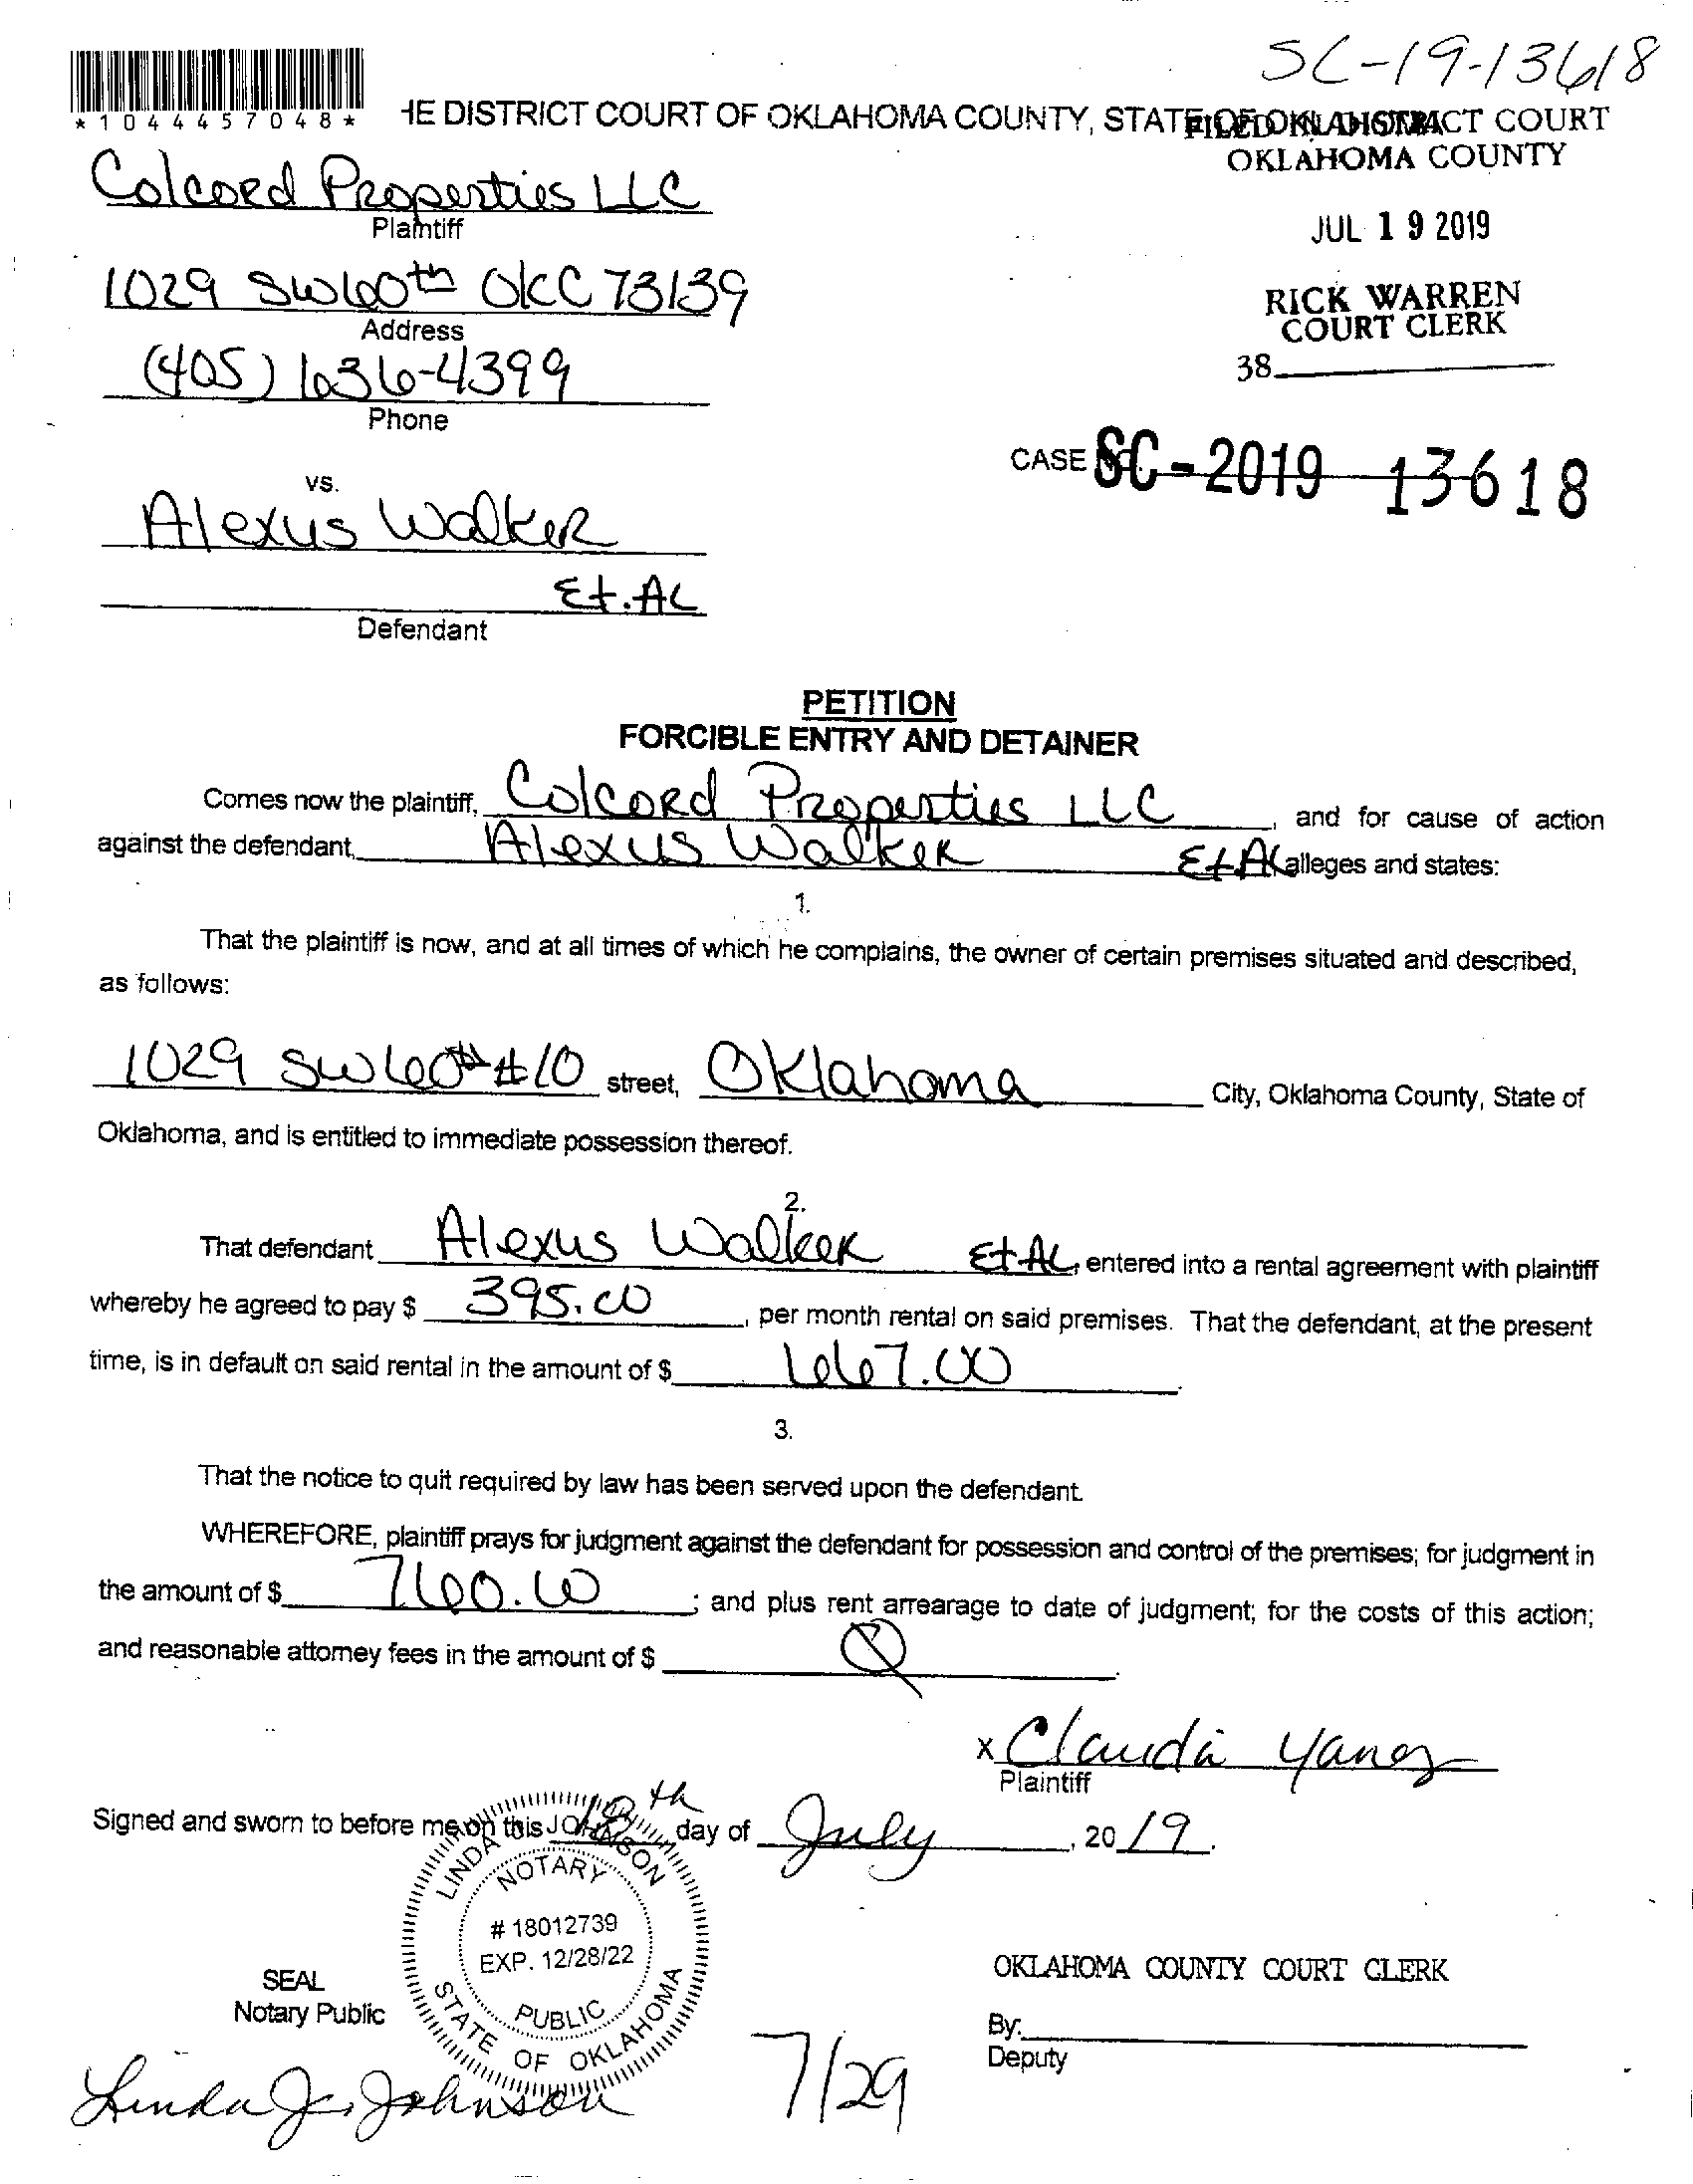 SC-19-13618
*1044457048*
HE DISTRICT COURT OF OKLAHOMA COUNTY, STATE OF OKLAHOMA
FILED IN DISTRICT COURT
OKLAHOMA COUNTY
Colcord Properties LLC
Plaintiff
JUL 19 2019
1029 SW 60th OKC 73139
Address
RICK WARREN
COURT CLERK
(405) 636-4399
Phone
38
CASE SC-2019 13618
vs.
Alexus Walker
Et. AL
Defendant
PETITION
FORCIBLE ENTRY AND DETAINER
Comes now the plaintiff, Colcord Properties LLC, and for cause of action
against the defendant, Alexus Walker Et AL alleges and states:
1.
That the plaintiff is now, and at all times of which he complains, the owner of certain premises situated and described,
as follows:
1029 SW 60th #10 street, Oklahoma City, Oklahoma County, State of
Oklahoma, and is entitled to immediate possession thereof.
2.
That defendant Alexus Walker Et AL, entered into a rental agreement with plaintiff
whereby he agreed to pay $ 395.00, per month rental on said premises. That the defendant, at the present
time, is in default on said rental in the amount of $ 667.00
3.
That the notice to quit required by law has been served upon the defendant.
WHEREFORE, plaintiff prays for judgment against the defendant for possession and control of the premises; for judgment in
the amount of $ 760.00; and plus rent arrearage to date of judgment; for the costs of this action;
and reasonable attorney fees in the amount of $
x Claudia Yanez
Plaintiff
Signed and sworn to before me on this 18th day of July, 2019.
LINDA JOHNSON
NOTARY
# 18012739
EXP. 12/28/22
PUBLIC
STATE OF OKLAHOMA
SEAL
Notary Public
OKLAHOMA COUNTY COURT CLERK
By:
Deputy
Linda J. Johnson
7/29